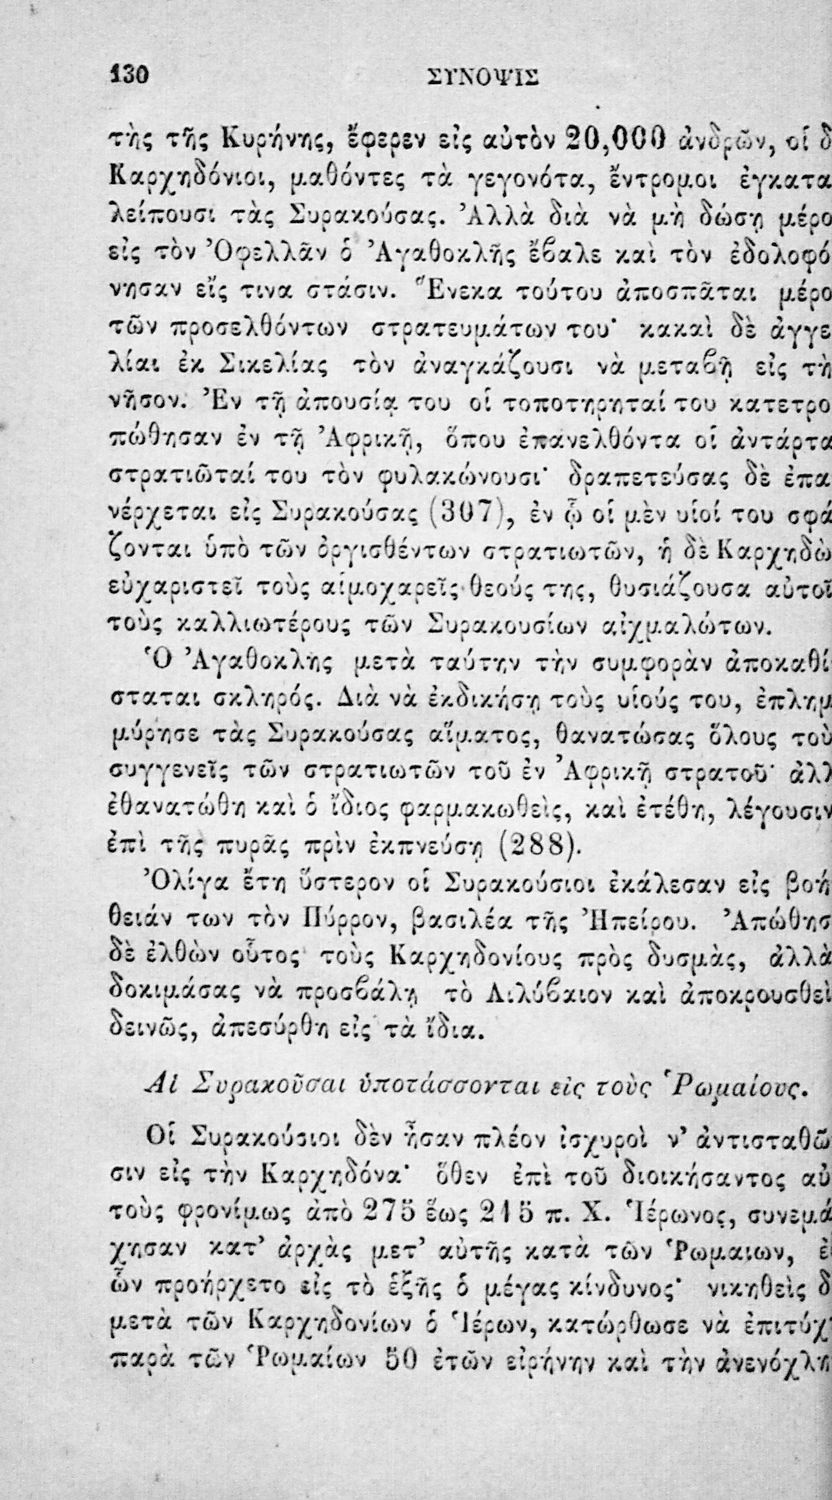 130 ΣΥΝΟΨΙΣ
τὴς τῆς Κυρήνης, ἔφερεν εἰς αὐτὸν 20,000 ἀνδρῶν, οἱ δ
Καρχηδόνιοι, μαθόντες τὰ γεγονότα, ἔντρομοι ἐγκατα
λείπουσι τὰς Συρακούσας. Ἀλλὰ διὰ νὰ μὴ δώσῃ μέρο
εἰς τὸν Ὀφελλᾶν ὁ Ἀγαθοκλῆς ἔβαλε καὶ τὸν ἐδολοφό
νησαν εἴς τινα στάσιν. Ἕνεκα τούτου ἀποσπᾶται μέρο
τῶν προσελθόντων στρατευμάτων του· κακαὶ δὲ ἀγγε
λίαι ἐκ Σικελίας τὸν ἀναγκάζουσι νὰ μεταβῇ εἰς τὴ
νῆσον. Ἐν τῇ ἀπουσίᾳ του οἱ τοποτηρηταί του κατετρο
πώθησαν ἐν τῇ Ἀφρικῇ, ὅπου ἐπανελθόντα οἱ ἀντάρτα
στρατιῶταί του τὸν φυλακώνουσι· δραπετεύσας δὲ ἐπα
νέρχεται εἰς Συρακούσας (307), ἐν ᾧ οἱ μὲν υἱοί του σφά
ζονται ὑπὸ τῶν ὀργισθέντων στρατιωτῶν, ἡ δὲ Καρχηδὼ
εὐχαριστεῖ τοὺς αἱμοχαρεῖς θεούς της, θυσιάζουσα αὐτοῖ
τοὺς καλλιωτέρους τῶν Συρακουσίων αἰχμαλώτων.
Ὁ Ἀγαθοκλῆς μετὰ ταύτην τὴν συμφορὰν ἀποκαθί
σταται σκληρός. Διὰ νὰ ἐκδικήσῃ τοὺς υἱούς του, ἐπλημ
μύρησε τὰς Συρακούσας αἵματος, θανατώσας ὅλους τοὺ
συγγενεῖς τῶν στρατιωτῶν τοῦ ἐν Ἀφρικῇ στρατοῦ· ἀλλ
ἐθανατώθη καὶ ὁ ἴδιος φαρμακωθεὶς, καὶ ἐτέθη, λέγουσιν
ἐπὶ τῆς πυρᾶς πρὶν ἐκπνεύσῃ (288).
Ὀλίγα ἔτη ὕστερον οἱ Συρακούσιοι ἐκάλεσαν εἰς βοή
θειάν των τὸν Πύρρον, βασιλέα τῆς Ἠπείρου. Ἀπώθησ
δὲ ἐλθὼν οὗτος τοὺς Καρχηδονίους πρὸς δυσμὰς, ἀλλὰ
δοκιμάσας νὰ προσβάλῃ τὸ Λιλύβαιον καὶ ἀποκρουσθεὶ
δεινῶς, ἀπεσύρθη εἰς τὰ ἴδια.
Αἱ Συρακοῦσαι ὑποτάσσονται εἰς τοὺς Ῥωμαίους.
Οἱ Συρακούσιοι δὲν ἦσαν πλέον ἰσχυροὶ ν’ ἀντισταθῶ
σιν εἰς τὴν Καρχηδόνα· ὅθεν ἐπὶ τοῦ διοικήσαντος αὐ
τοὺς φρονίμως ἀπὸ 275 ἕως 215 π. Χ. Ἱέρωνος, συνεμά
χησαν κατ’ ἀρχὰς μετ’ αὐτῆς κατὰ τῶν Ῥωμαιων, ἐ
ὧν προήρχετο εἰς τὸ ἑξῆς ὁ μέγας κίνδυνος· νικηθεὶς δ
μετὰ τῶν Καρχηδονίων ὁ Ἱέρων, κατώρθωσε νὰ ἐπιτύχ
παρὰ τῶν Ῥωμαίων 50 ἐτῶν εἰρήνην καὶ τὴν ἀνενόχλη